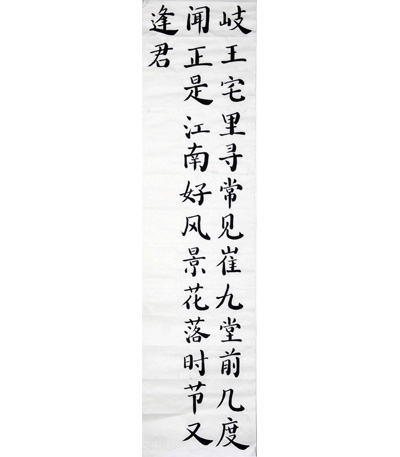 岐王宅里寻常见崔九堂前几度
闻正是江南好风景花落时节又
逢君